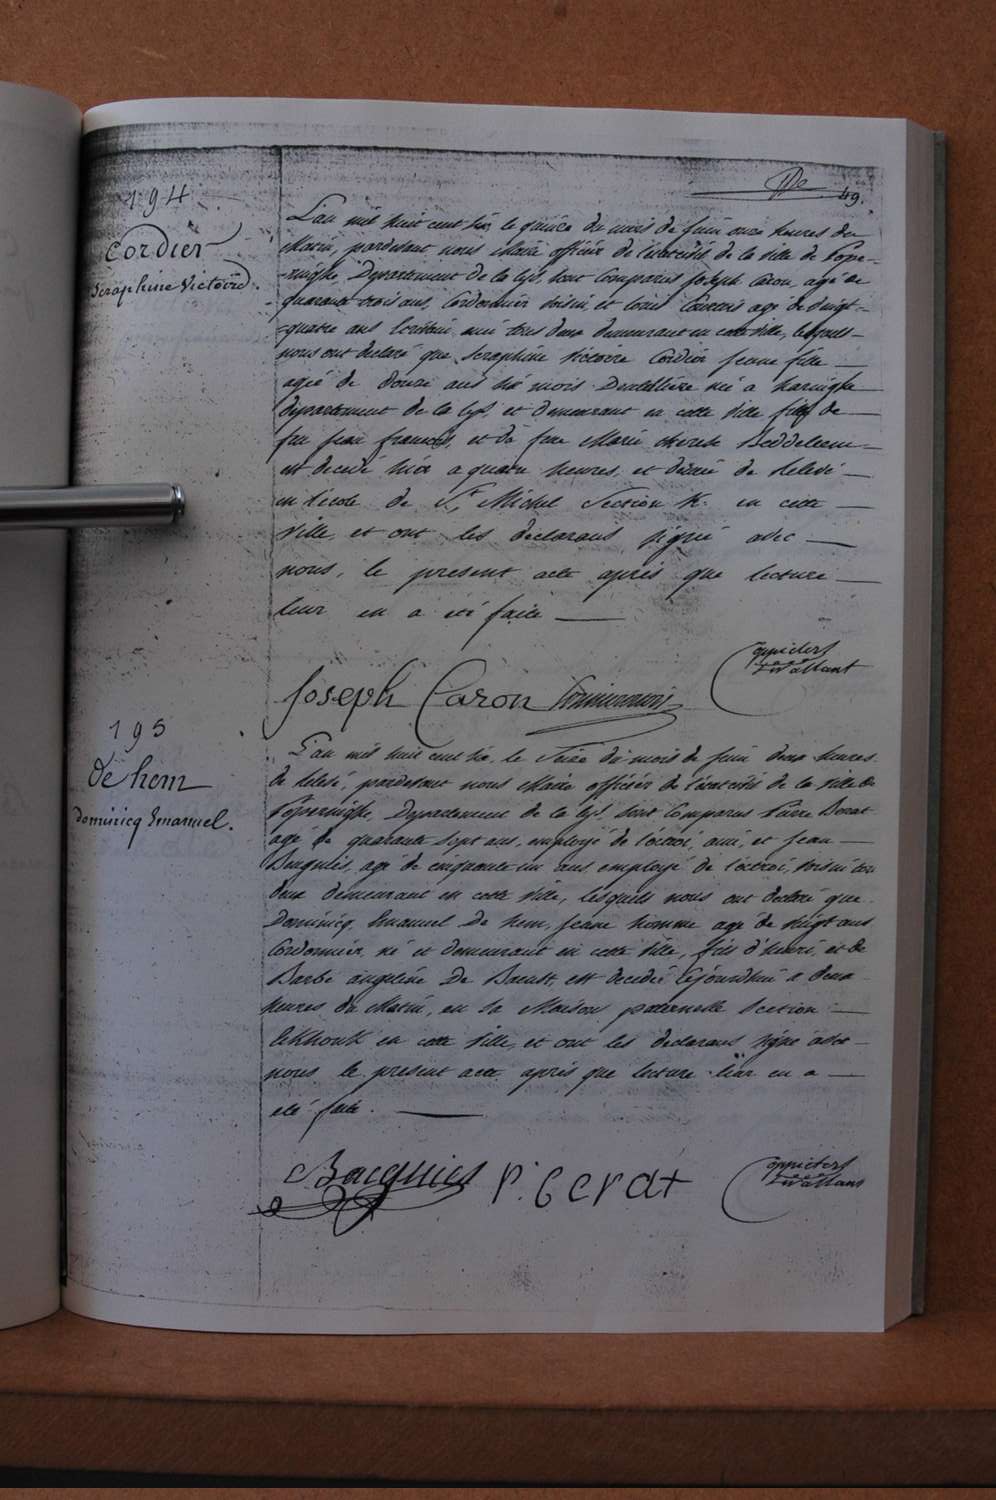 49.
194
Cordier
Seraphine Victoire.
L'an mil huit cent six, le quinze du mois de juin onze heures du
Matin, pardevant nous Maire officier de l'état civil de la ville de Pope-
-ringhe, Departement de la Lys, sont comparus Joseph Caron, agé de
quarante trois ans, Cordonnier voisin, et Louis agé de vingt-
-quatre ans ami tous deux demeurant en cette ville, lesquels
nous ont declaré que Seraphine Victoire Cordier jeune fille
agée de douze ans six mois Dentellière née a haringhe
departement de la Lys, et demeurant en cette ville fille de
feu jean francois, et de feue Marie therese
est decedé hier a quatre heures, et demie de relevé
en l'école de St. Michel Section K. en cette
ville, et ont les declarans signé avec
nous, le present acte après que lecture
leur en a été faite
Joseph Caron
195
de hem
dominicq Emanuel.
L'an mil huit cent six, le seize du mois de juin deux heures
de relevé, pardevant nous Maire officier de l'état civil de la ville de
Poperinghe, Departement de la Lys, sont comparus Pierre
agé de quarante sept ans, employé de l'octroi, ami, et jean
agé de cinquante un ans, employé de l'octroi, voisin tous
deux demeurant en cette ville, lesquels nous ont declaré que
Dominicq Emanuel De hem, jeune homme agé de vingt ans
Cordonnier, né et demeurant en cette ville, fils d'henri, et de
Barbe angeline De est decedé cejourdhui a deux
heures du Matin, en sa Maison paternelle Section
en cette ville, et ont les declarans signé avec
nous le present acte après que lecture leur en a
été faite.